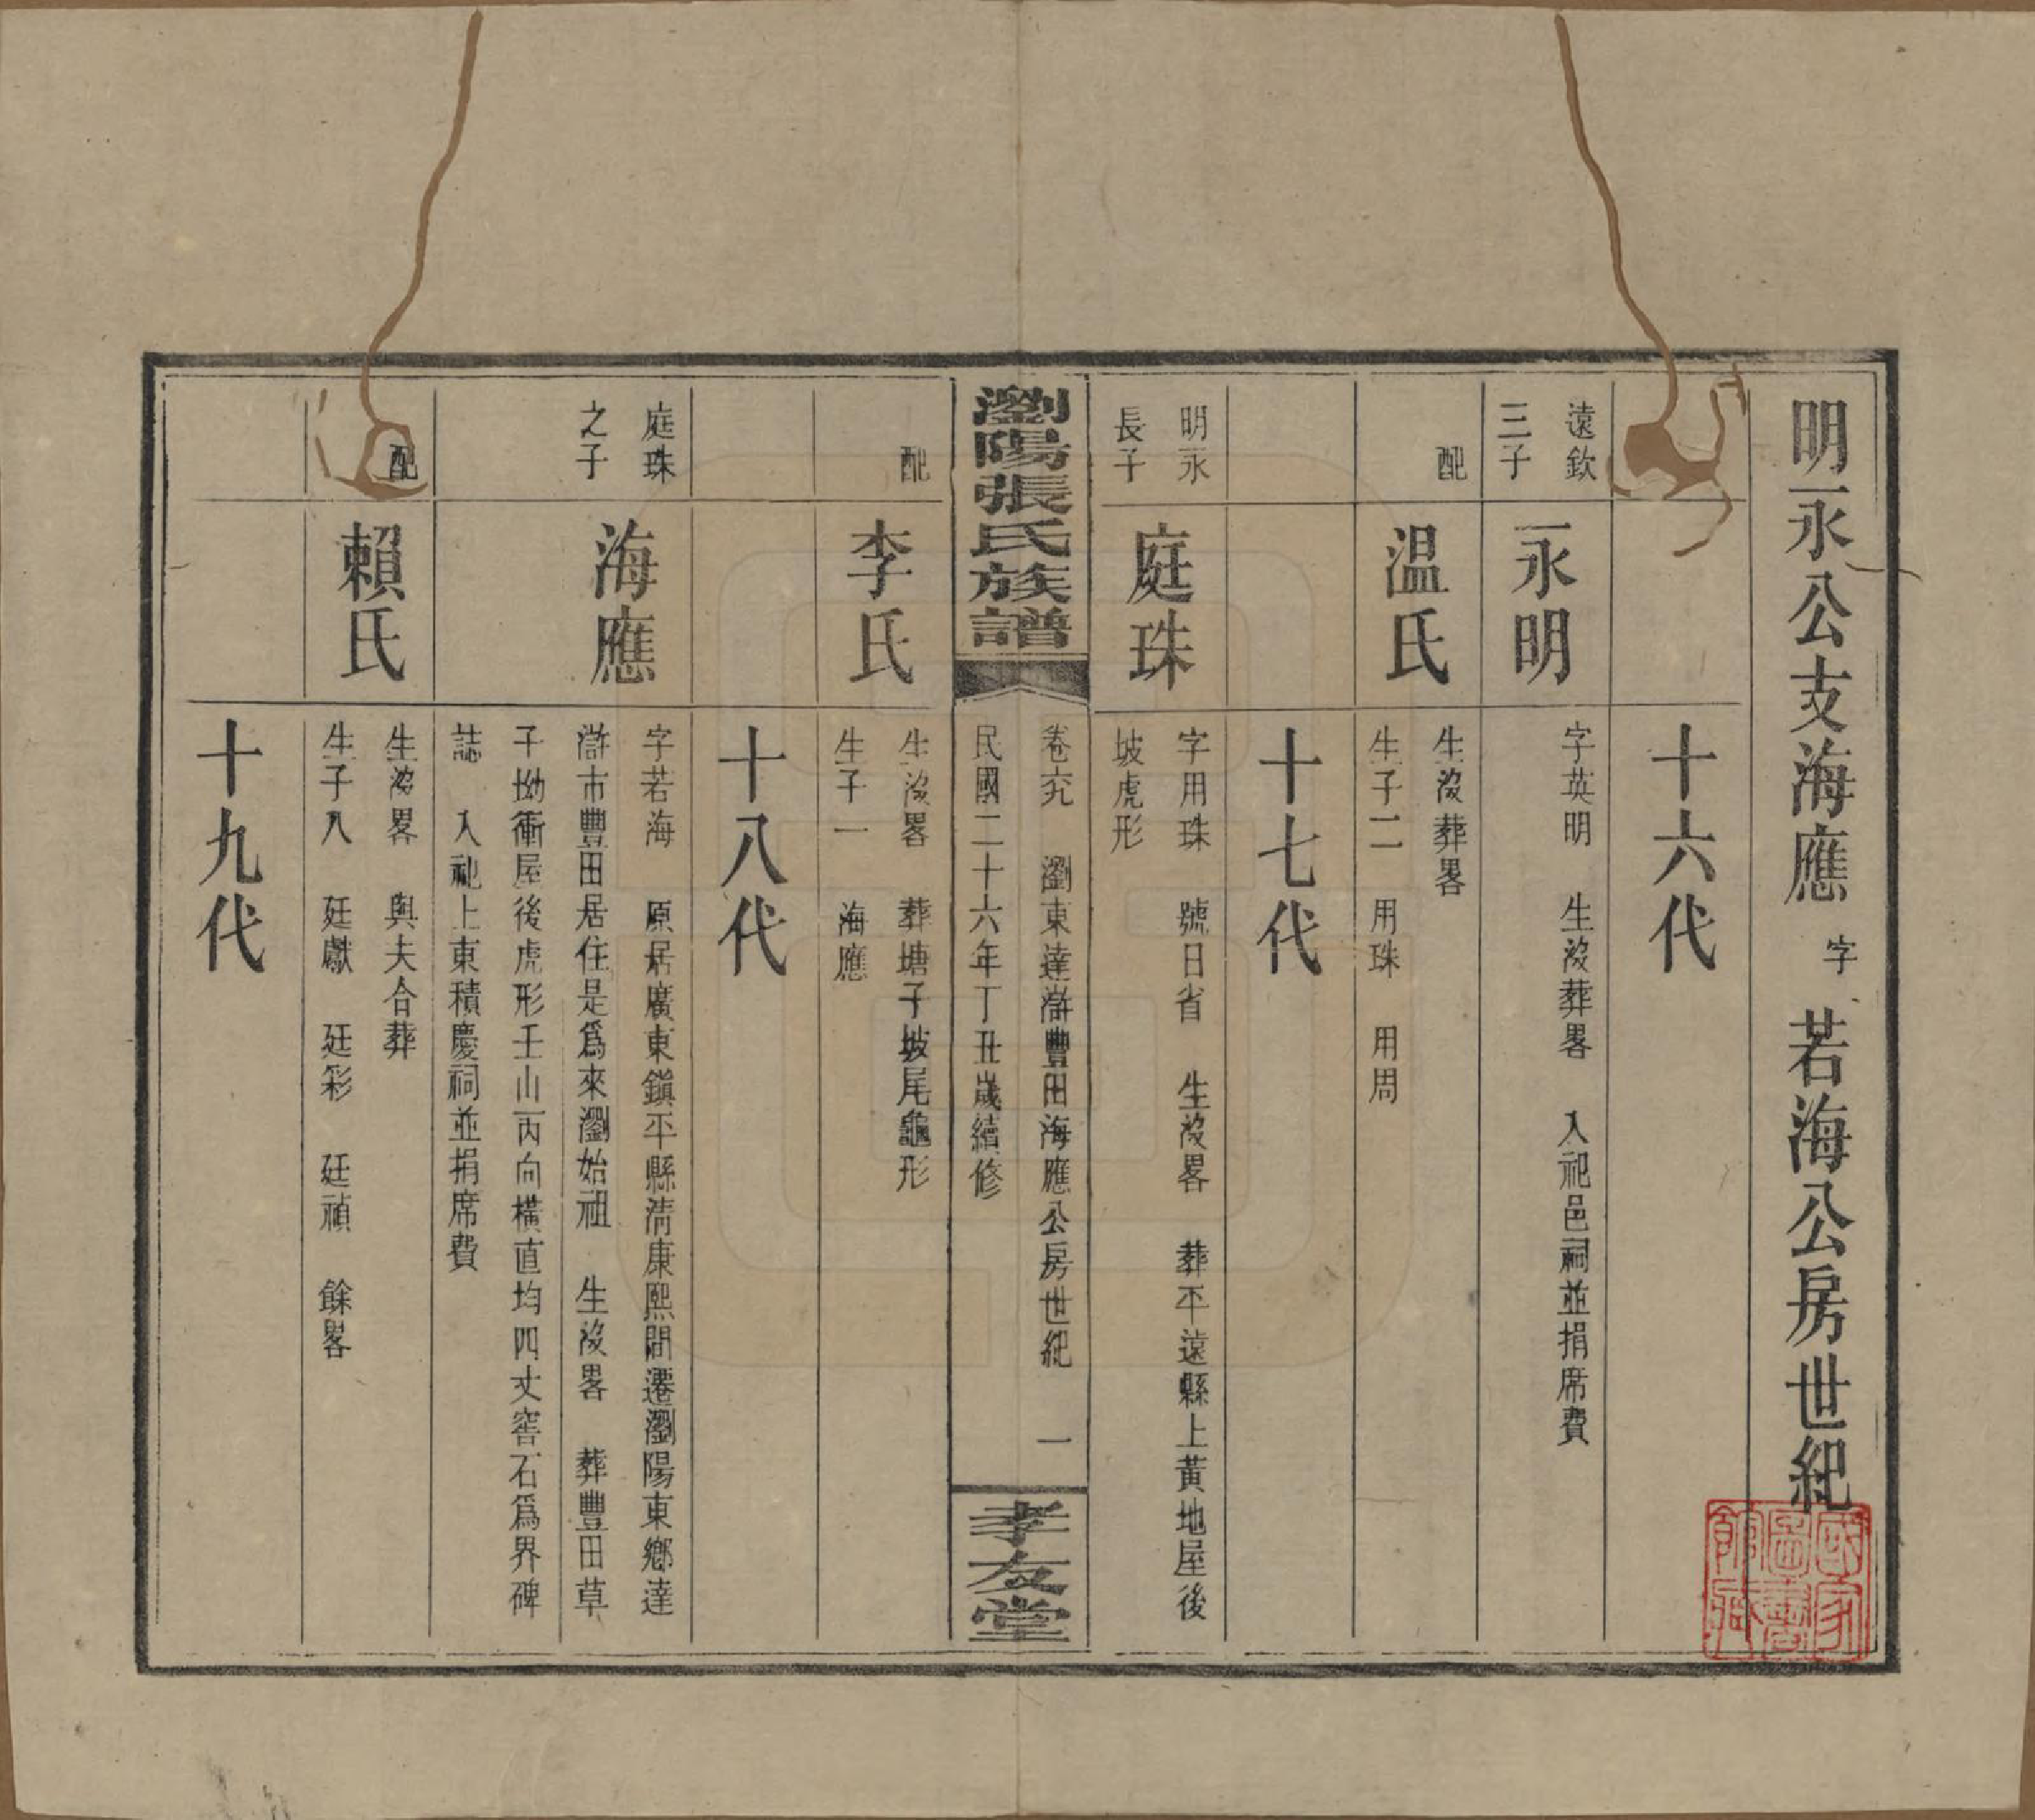 明永公支海應字若海公房世紀
十六代
遠欽
三子
永明
字英明 生沒葬畧 入祀邑祠並捐席費
配
温氏
生沒葬畧
生子二 用珠 用周
十七代
明永
長子
庭珠
字用珠 號日省 生沒畧 葬平遠縣上黃地屋後
坡虎形
瀏陽張氏族譜
卷六 瀏東達滸豐田海應公房世紀 一
民國二十六年丁丑歲續修
孝友堂
配
李氏
生沒畧 葬塘子坡尾龜形
生子一 海應
十八代
庭珠
之子
海應
字若海 原居廣東鎮平縣清康熙間遷瀏陽東鄉達
滸市豐田居住是爲來瀏始祖 生沒畧 葬豐田草
子坳衝屋後虎形壬山丙向橫直均四丈窖石爲界碑
誌 入祀上東積慶祠並捐席費
配
賴氏
生沒畧 與夫合葬
生子八 廷獻 廷彩 廷禎 餘畧
十九代
國家
圖書
館藏